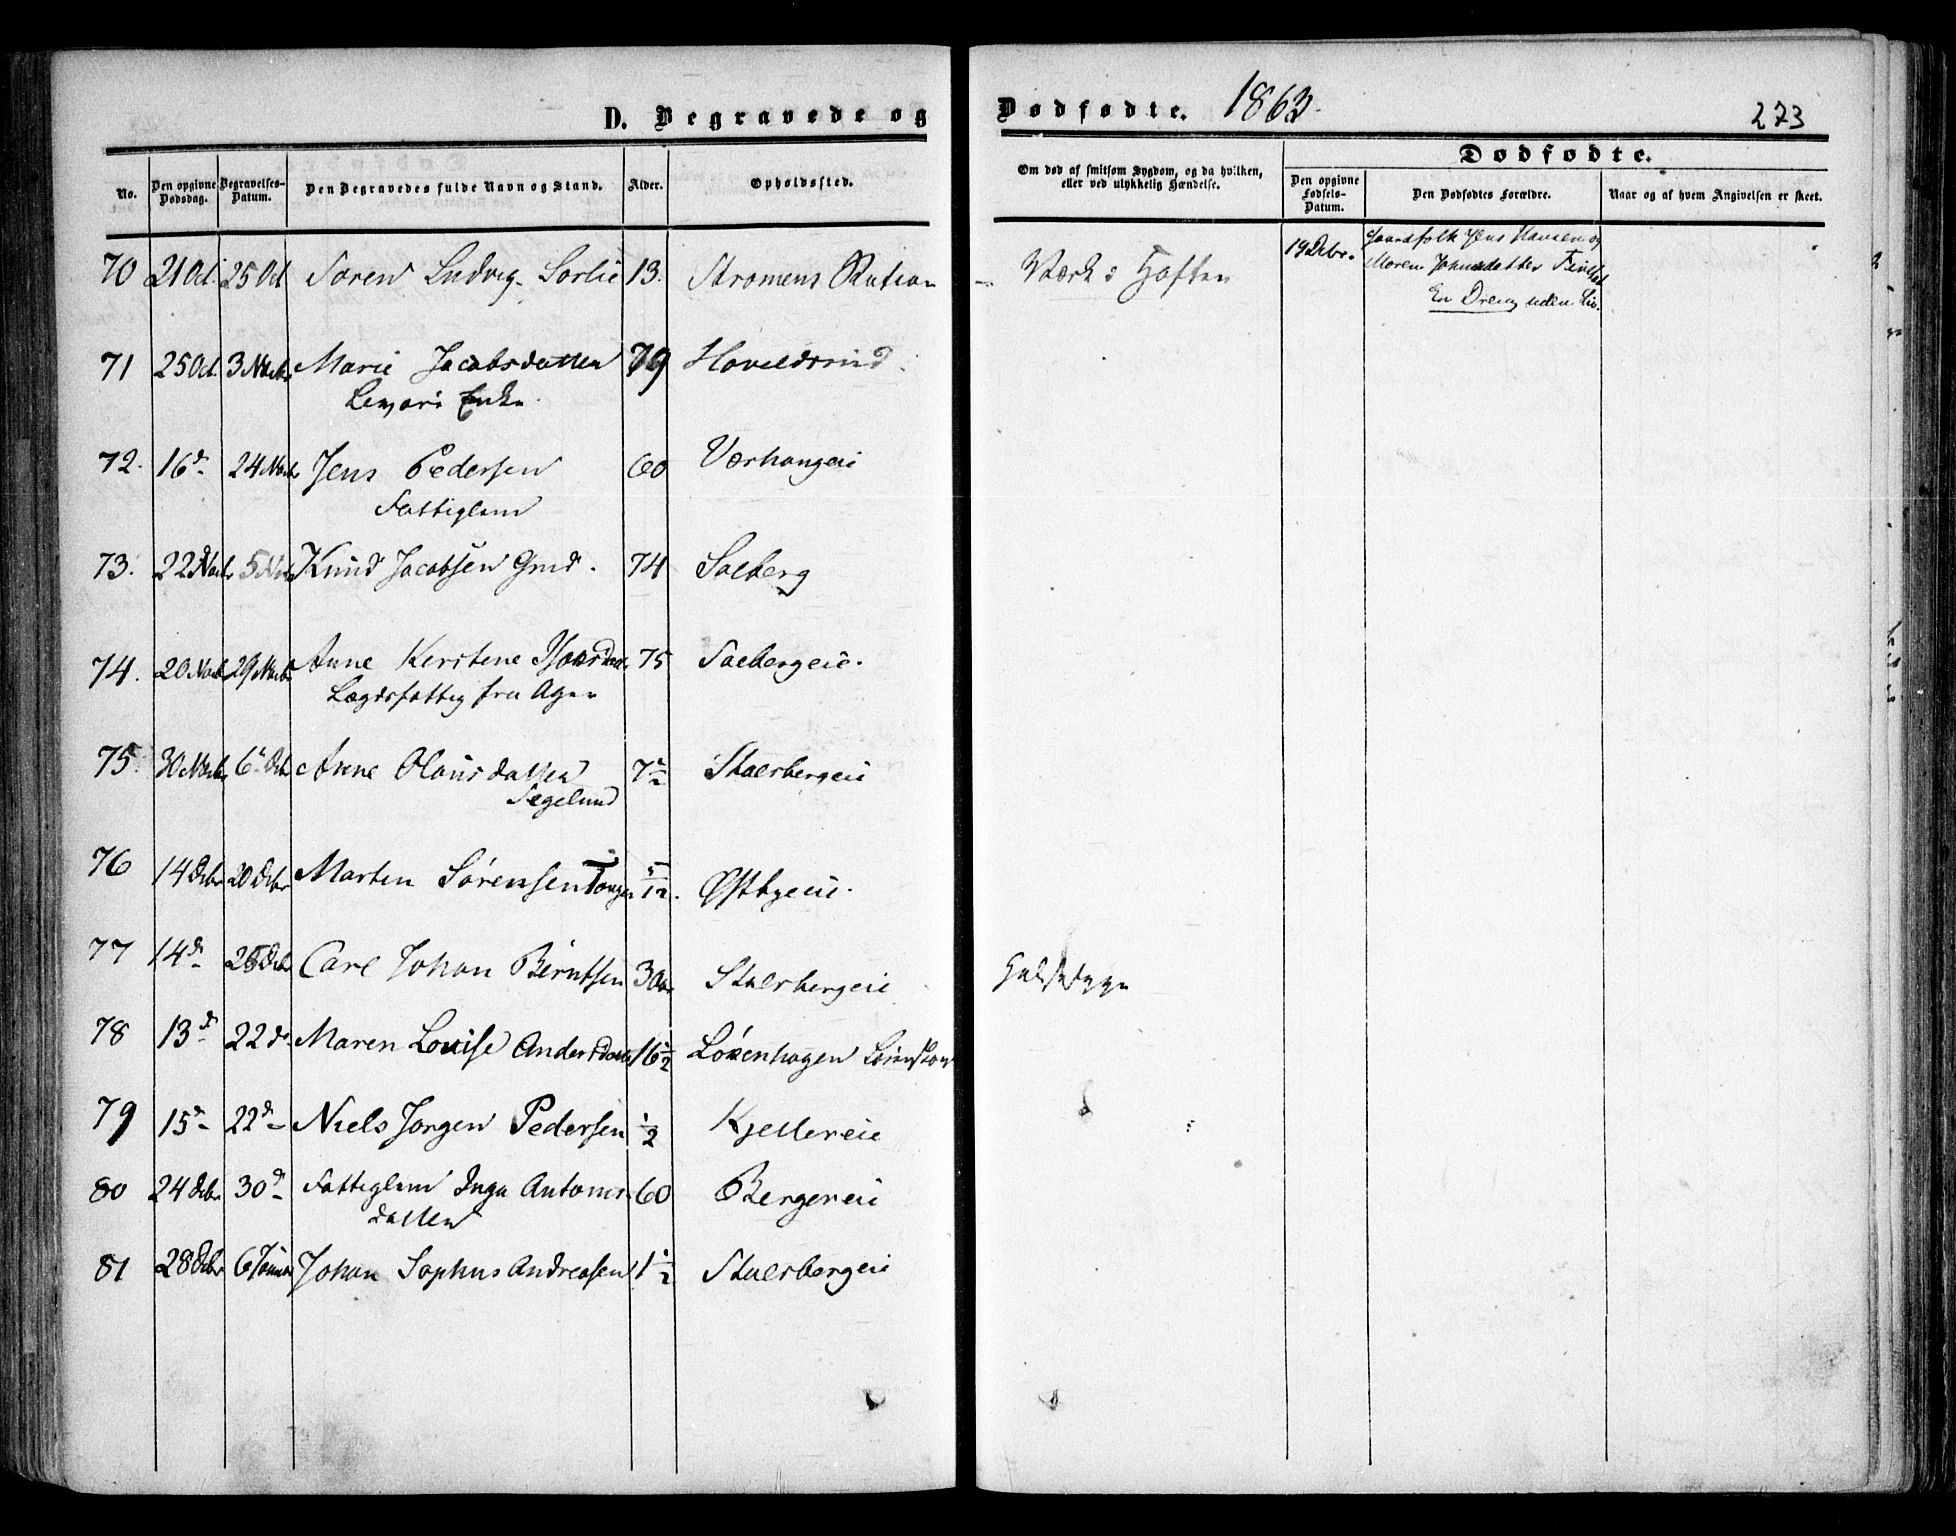 D. Begravede og Dødfødte. 1863. 273
No. Den opgivne Dødsdag. Begravelses-Datum. Den Begravedes fulde Navn og Stand. Alder. Opholdssted.
Om død af smitsom Sygdom, og da hvilken, eller ved ulykkelig Hændelse.
Dødfødte.
Den opgivne Fødsels-Datum. Den Dødfødtes Forældre. Naar og af hvem Angivelsen er skeet.
70 21 Oct. 25 Oct Søren Ludvig Sorlie 13. Strømens Station Værk i Hoften
19 Decbr. Gaardfolk Jens Hansen og
Maren Johnsdatter
En Dreng uden Liv.
71 25 Oct. 3 Novbr Marie Jacobsdatter 79
Enke
72. 16 d. 24 Novbr Jens Pedersen 60 Værhaugeie
Fattiglem
73. 22 Novbr 5 Knud Jacobsen Gmd. 74 Solberg
74. 20 Novbr 29 Novbr Anne Kerstine 75 Solbergeie.
Lægdsfattig fra Ager
75. 30 Novbr 6 Dcbr Anne Olausdatter 7 1/2 Stalsbergeie
Fegelund
76 14 Dcbr 20 Dcbr Marten Sørensen 5/12. Østbyeie.
77 14 d. Dcbr Carl Johan Berntsen 30 Stalsbergeie Halssyge
78 13 d. 22 d. Maren Louise Andersdatter 16 1/2 Løkenhagen Lørenskov
79 15 d. 22 d. Niels Jørgen Pedersen 1/2 Kjellereie
80 24 Dcbr. 30 d. Fattiglem Inga Antons- 60 Bergereie
datter
81 28 Dcbr 6 Januar Johan Sophus Andreasen 1 1/2 Stalsbergeie